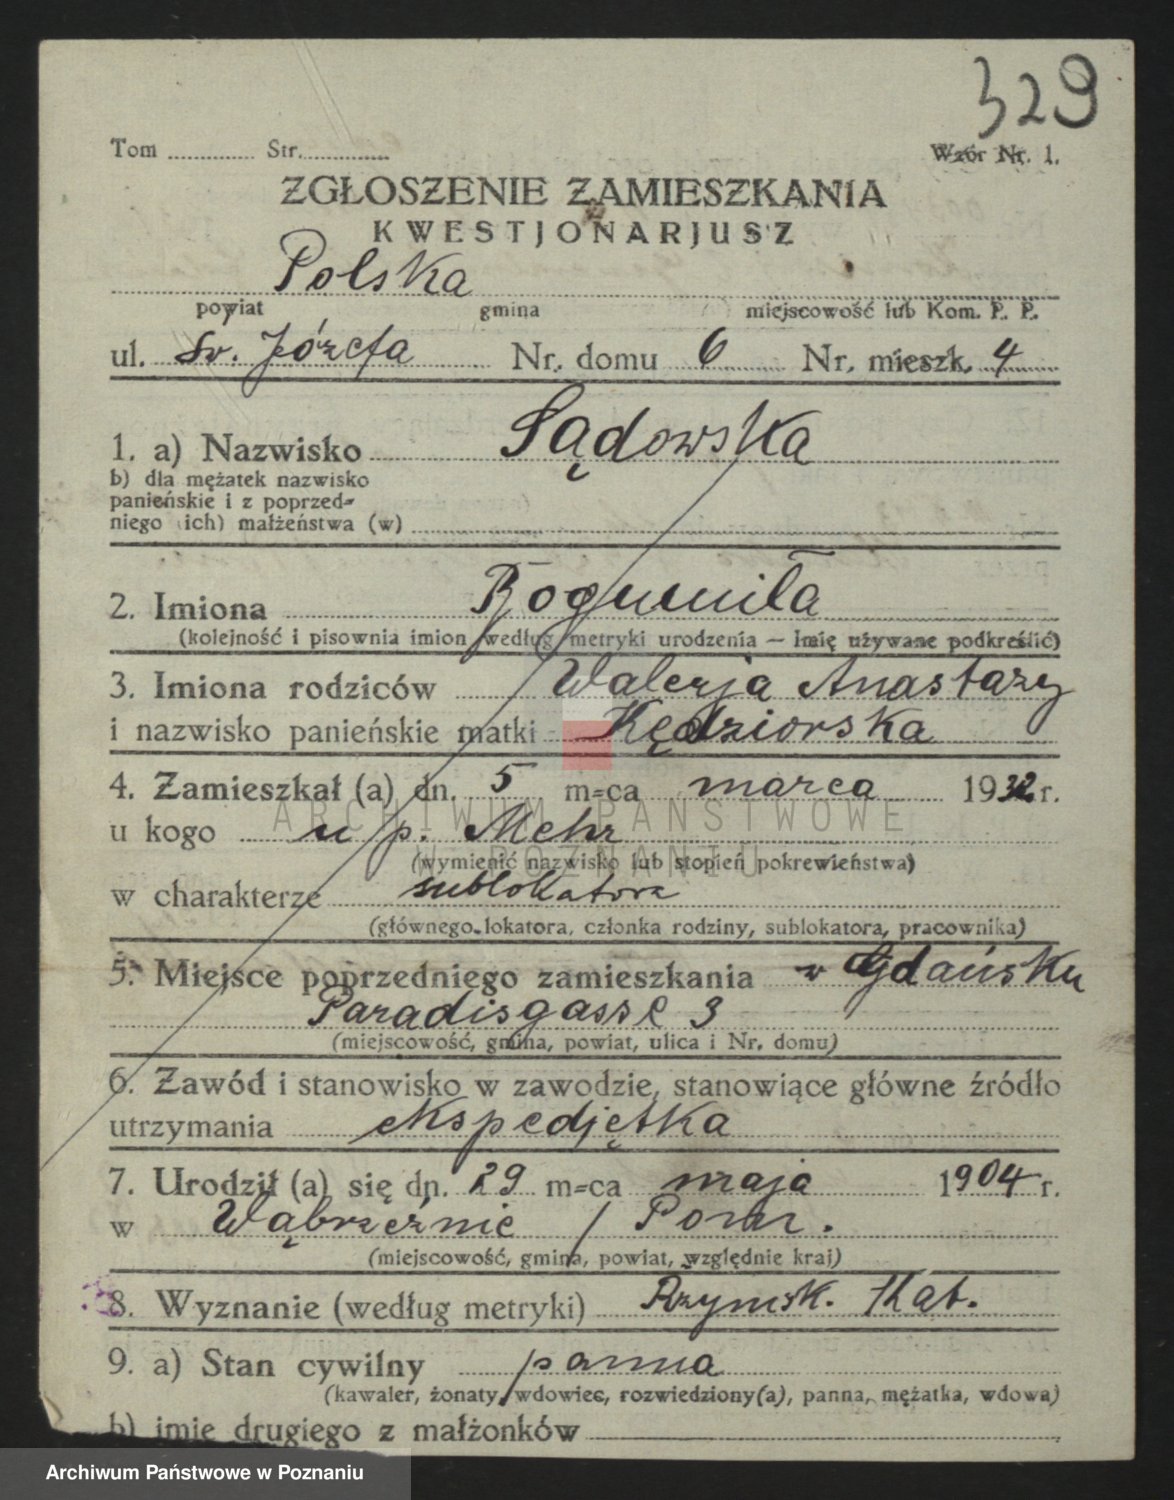 329
Tom Str. Wzór Nr. 1.
ZGŁOSZENIE ZAMIESZKANIA
KWESTJONARJUSZ
Polska
powiat gmina miejscowość lub Kom. P. P.
ul. Św. Józefa Nr. domu 6 Nr. mieszk. 4
1. a) Nazwisko Sądowska
b) dla mężatek nazwisko
panieńskie i z poprzed-
niego (ich) małżeństwa (w)
2. Imiona Bogumiła
(kolejność i pisownia imion według metryki urodzenia – Imię używane podkreślić)
3. Imiona rodziców Walerja Anastazy
i nazwisko panieńskie matki Kędziorska
4. Zamieszkał (a) dn. 5 m=ca marca 1932 r.
u kogo u p. Mehr
(wymienić nazwisko lub stopień pokrewieństwa)
ARCHIWUM PAŃSTWOWE
POZNANIU
w charakterze sublokatora
(głównego lokatora, członka rodziny, sublokatora, pracownika)
5. Miejsce poprzedniego zamieszkania w Gdańsku
Paradisgasse 3
(miejscowość, gmina, powiat, ulica i Nr. domu)
6. Zawód i stanowisko w zawodzie, stanowiące główne źródło
utrzymania ekspedjętka
7. Urodził (a) się dn. 29 m=ca maja 1904 r.
w Wąbrzeźnie / Pomr.
(miejscowość, gmina, powiat, względnie kraj)
8. Wyznanie (według metryki) Rzymsk. Kat.
9. a) Stan cywilny panna
(kawaler, żonaty, wdowiec, rozwiedziony(a), panna, mężatka, wdowa)
b) imię drugiego z małżonków
Archiwum Państwowe w Poznaniu